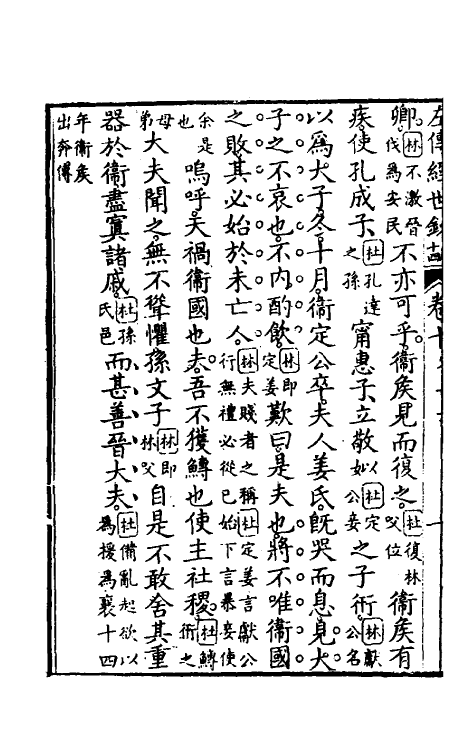 左傳經世鈔 卷十
卿林不激晉伐為安民不亦可乎衛矦見而復之杜復林父位衛矦有
疾使孔成子杜孔達之孫甯惠子立敬姒杜定公妾之子衎林獻公名
以為大子冬十月衛定公卒夫人姜氏既哭而息見大
子之不哀也不內酌飲林即定姜歎曰是夫也將不唯衛國
之敗其必始於未亡人林夫賤者之稱杜定姜言獻公行無禮必從已始下言暴妾使
余是也嗚呼天禍衛國也夫吾不獲鱄也使主社稷杜鱄衎之
母弟大夫聞之無不聳懼孫文子林即林父自是不敢舍其重
器於衛盡寘諸戚杜孫氏邑而甚善晉大夫杜備亂起欲以為援為襄十四
年衛矦出奔傳